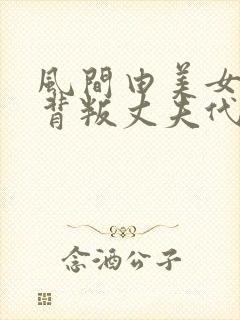 風間由美女
背叛丈夫代
念酒公子